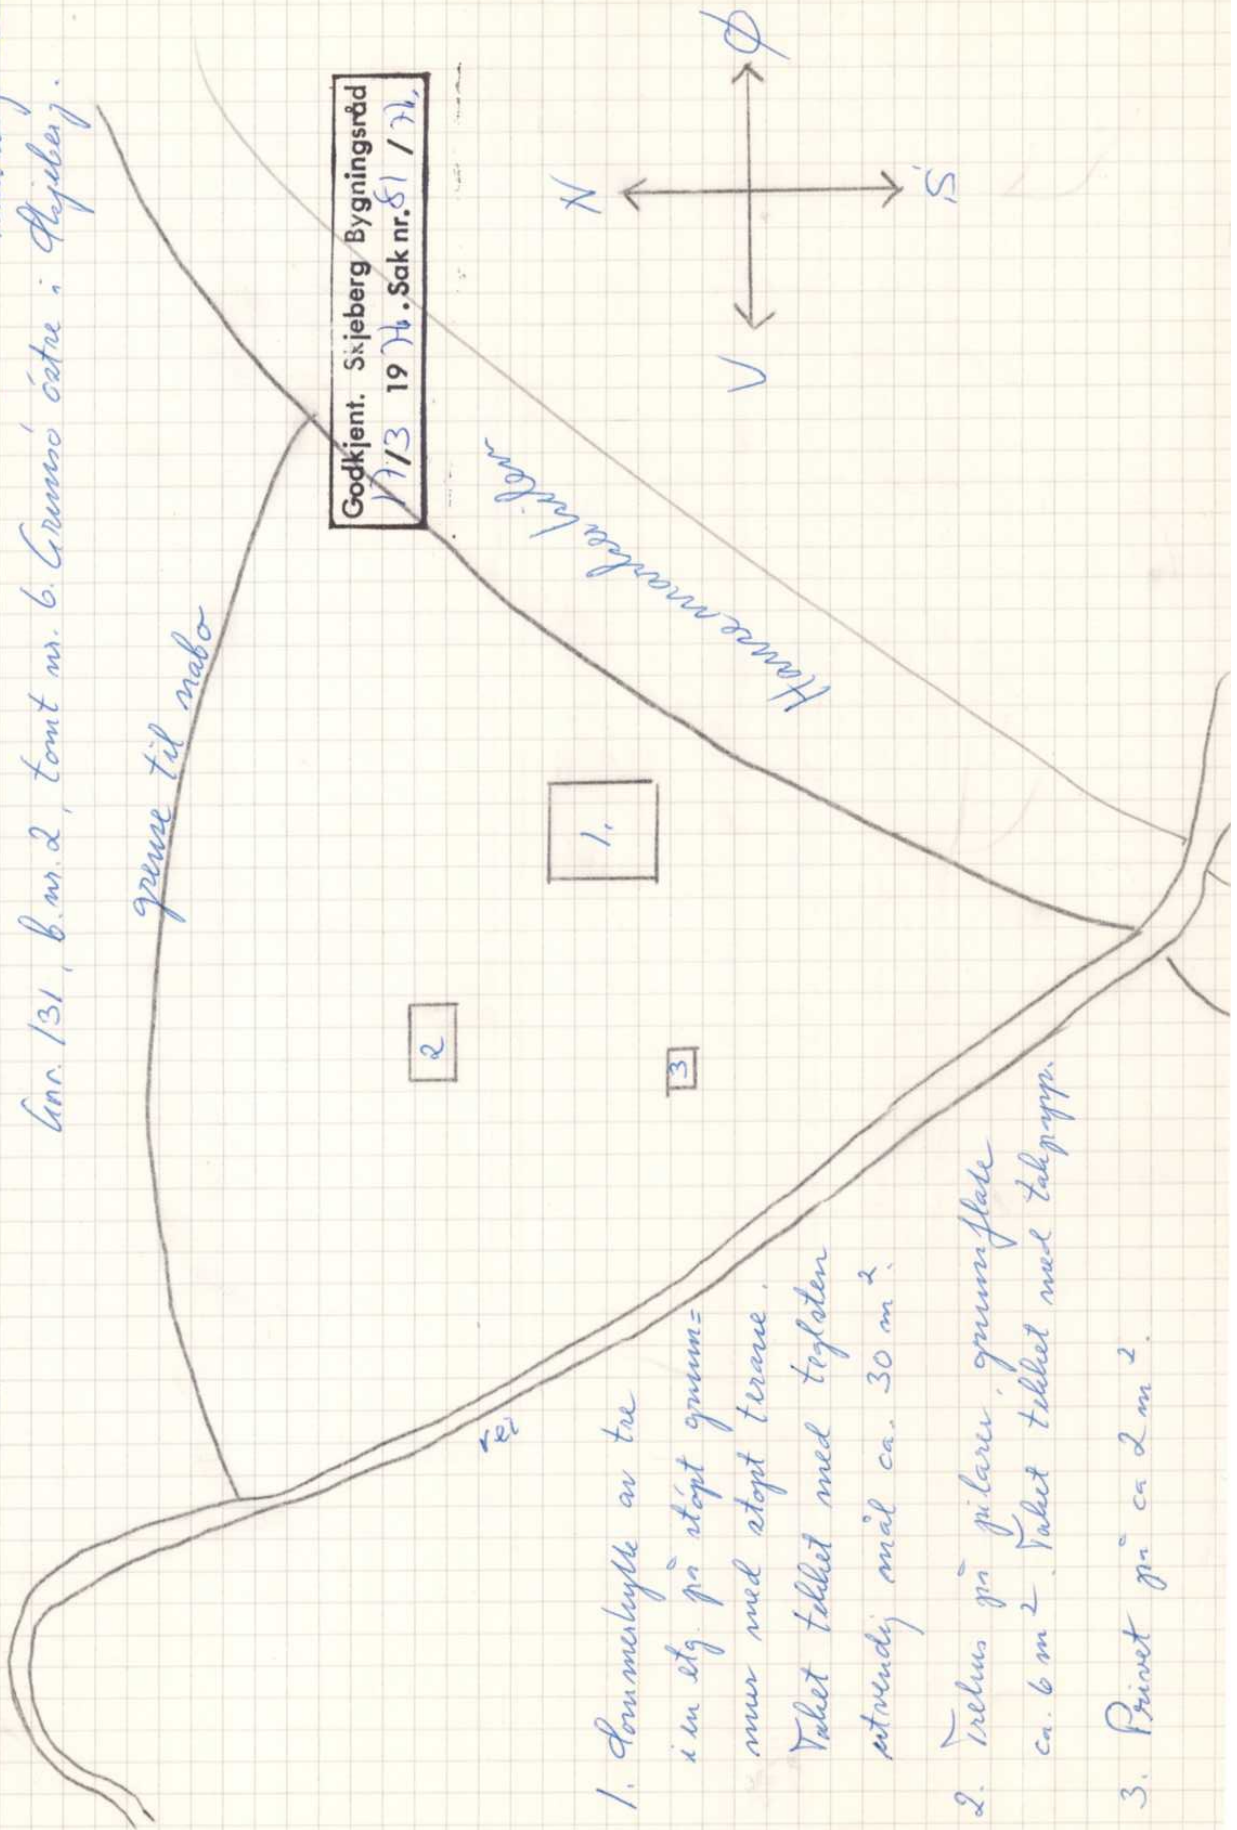 Gnr. 131, b.nr. 2, tomt nr. 6. Grimsö östre i Skjeberg.
grense til nabo
Godkjent. Skjeberg Bygningsråd
17/3 1976. Sak nr. 81 / 76.
N
V
Ø
S
Hannemarkakilen
1.
2
3
vei
1. Sommerhytte av tre
i en etg. på støpt grunn=
mur med støpt terasse.
Taket tekket med teglsten
utvendig mål ca. 30 m².
2. Trehus på pilarer, grunnflate
ca. 6 m². Taket tekket med takpapp.
3. Privet på ca 2 m².